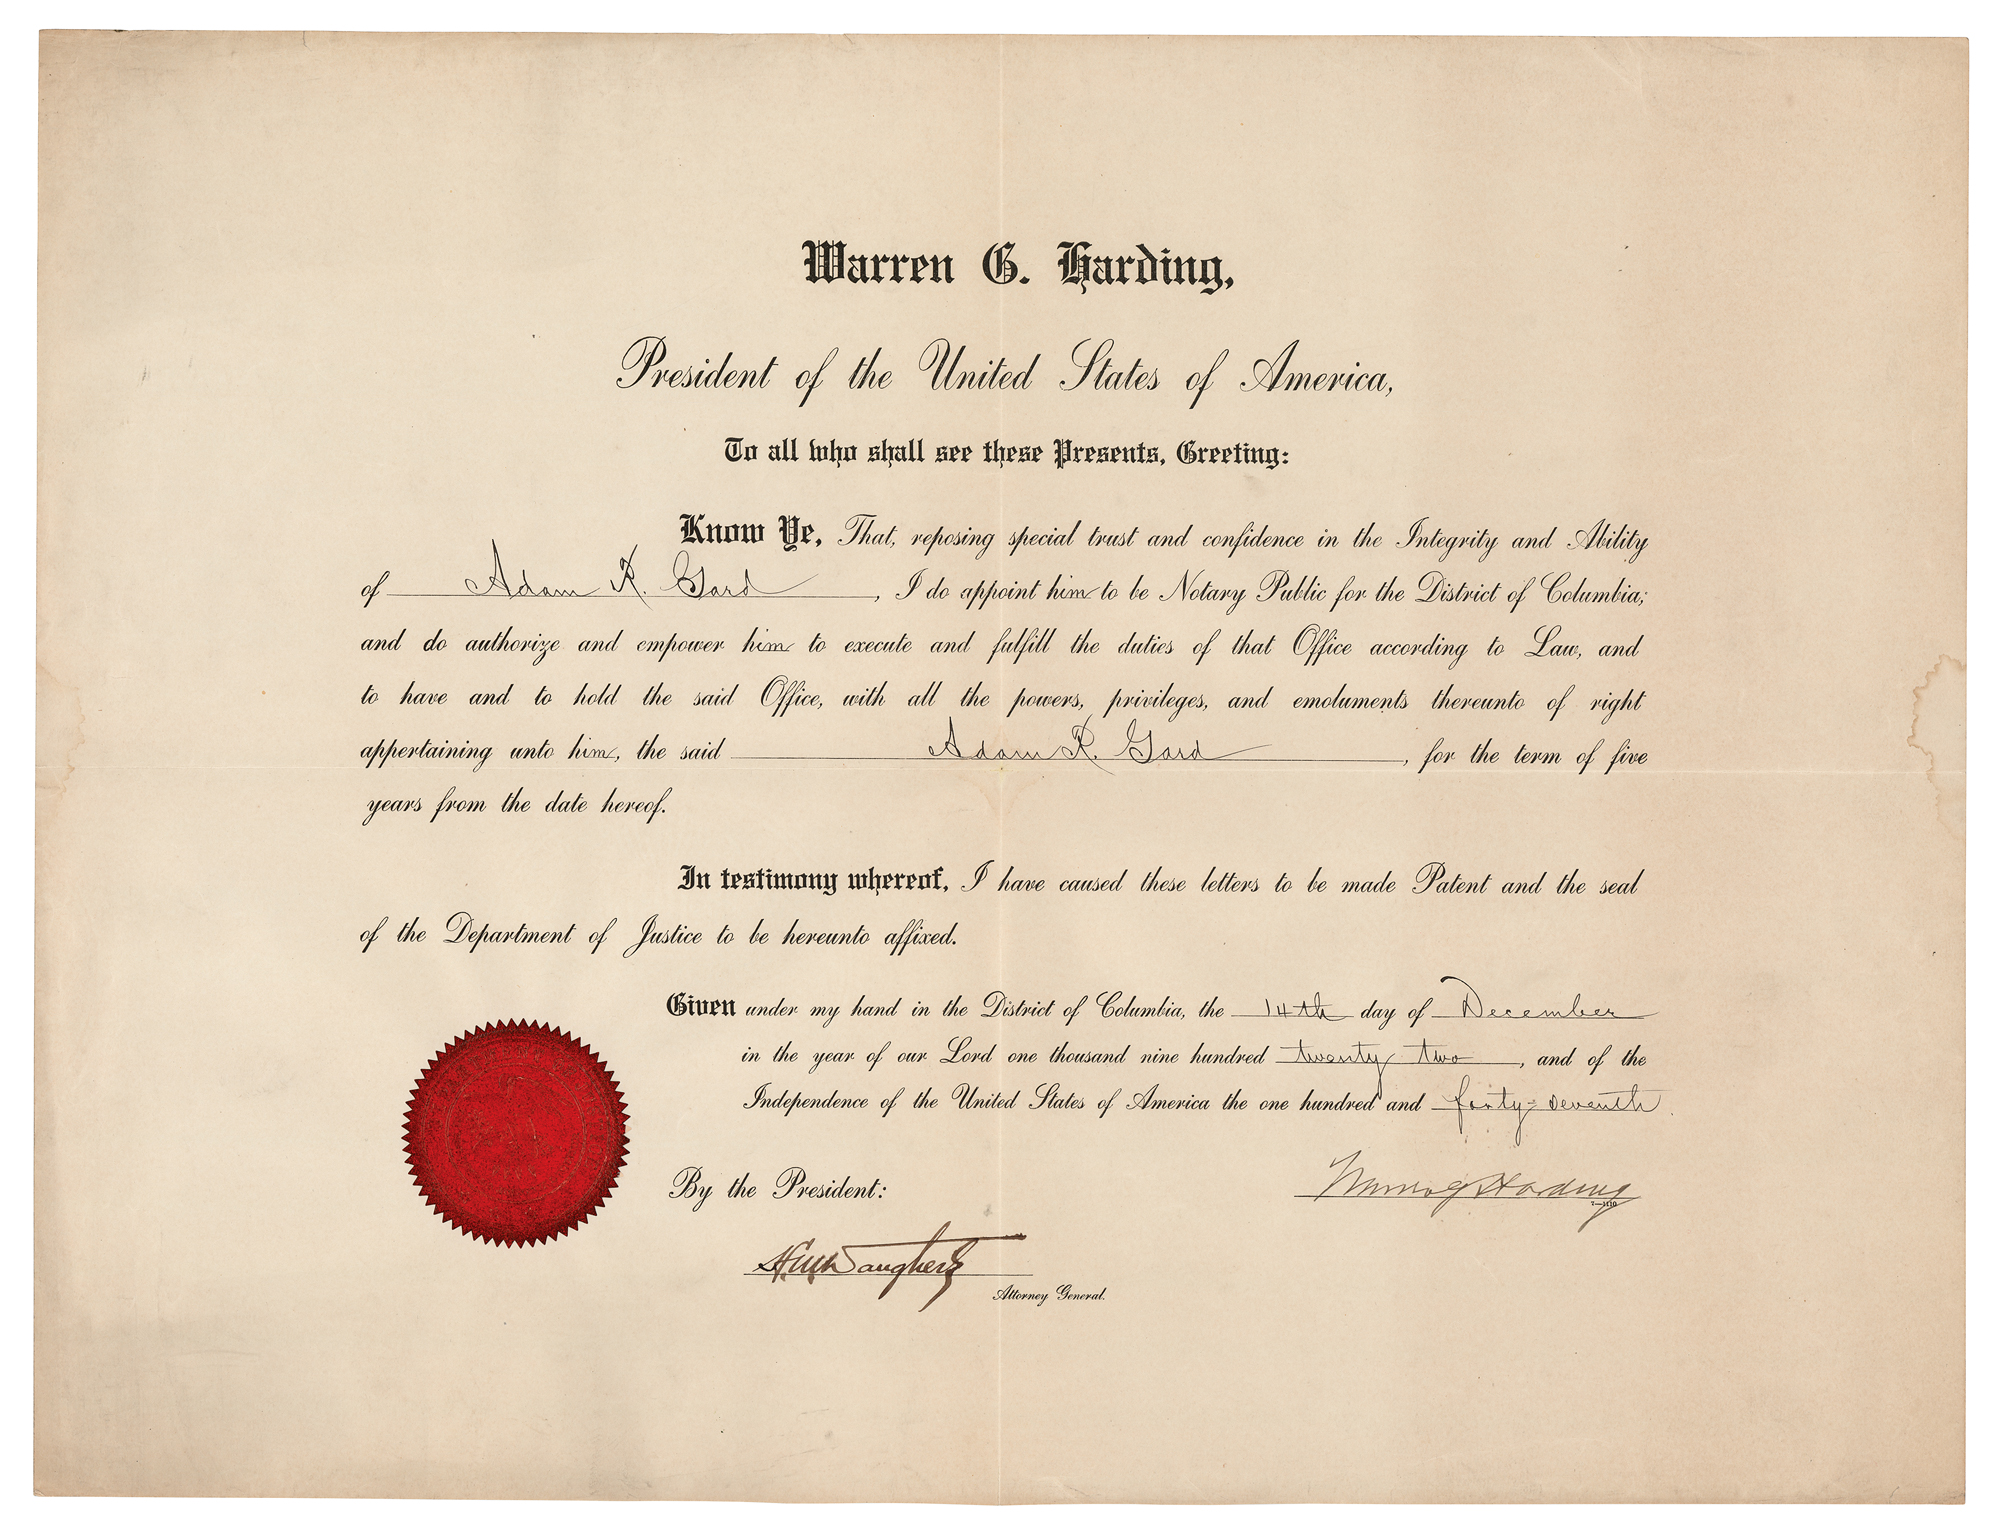 Warren G. Harding,
President of the United States of America,
To all who shall see these Presents, Greeting:
Know Ye, That, reposing special trust and confidence in the Integrity and Ability
of Adam R. Gard, I do appoint him to be Notary Public for the District of Columbia;
and do authorize and empower him to execute and fulfill the duties of that Office according to Law, and
to have and to hold the said Office, with all the powers, privileges, and emoluments thereunto of right
appertaining unto him, the said Adam R. Gard, for the term of five
years from the date hereof.
In testimony whereof, I have caused these letters to be made Patent and the seal
of the Department of Justice to be hereunto affixed.
Given under my hand in the District of Columbia, the 14th day of December
in the year of our Lord one thousand nine hundred twenty two, and of the
Independence of the United States of America the one hundred and forty-seventh.
By the President:
Warren G Harding
H M Daugherty
Attorney General.